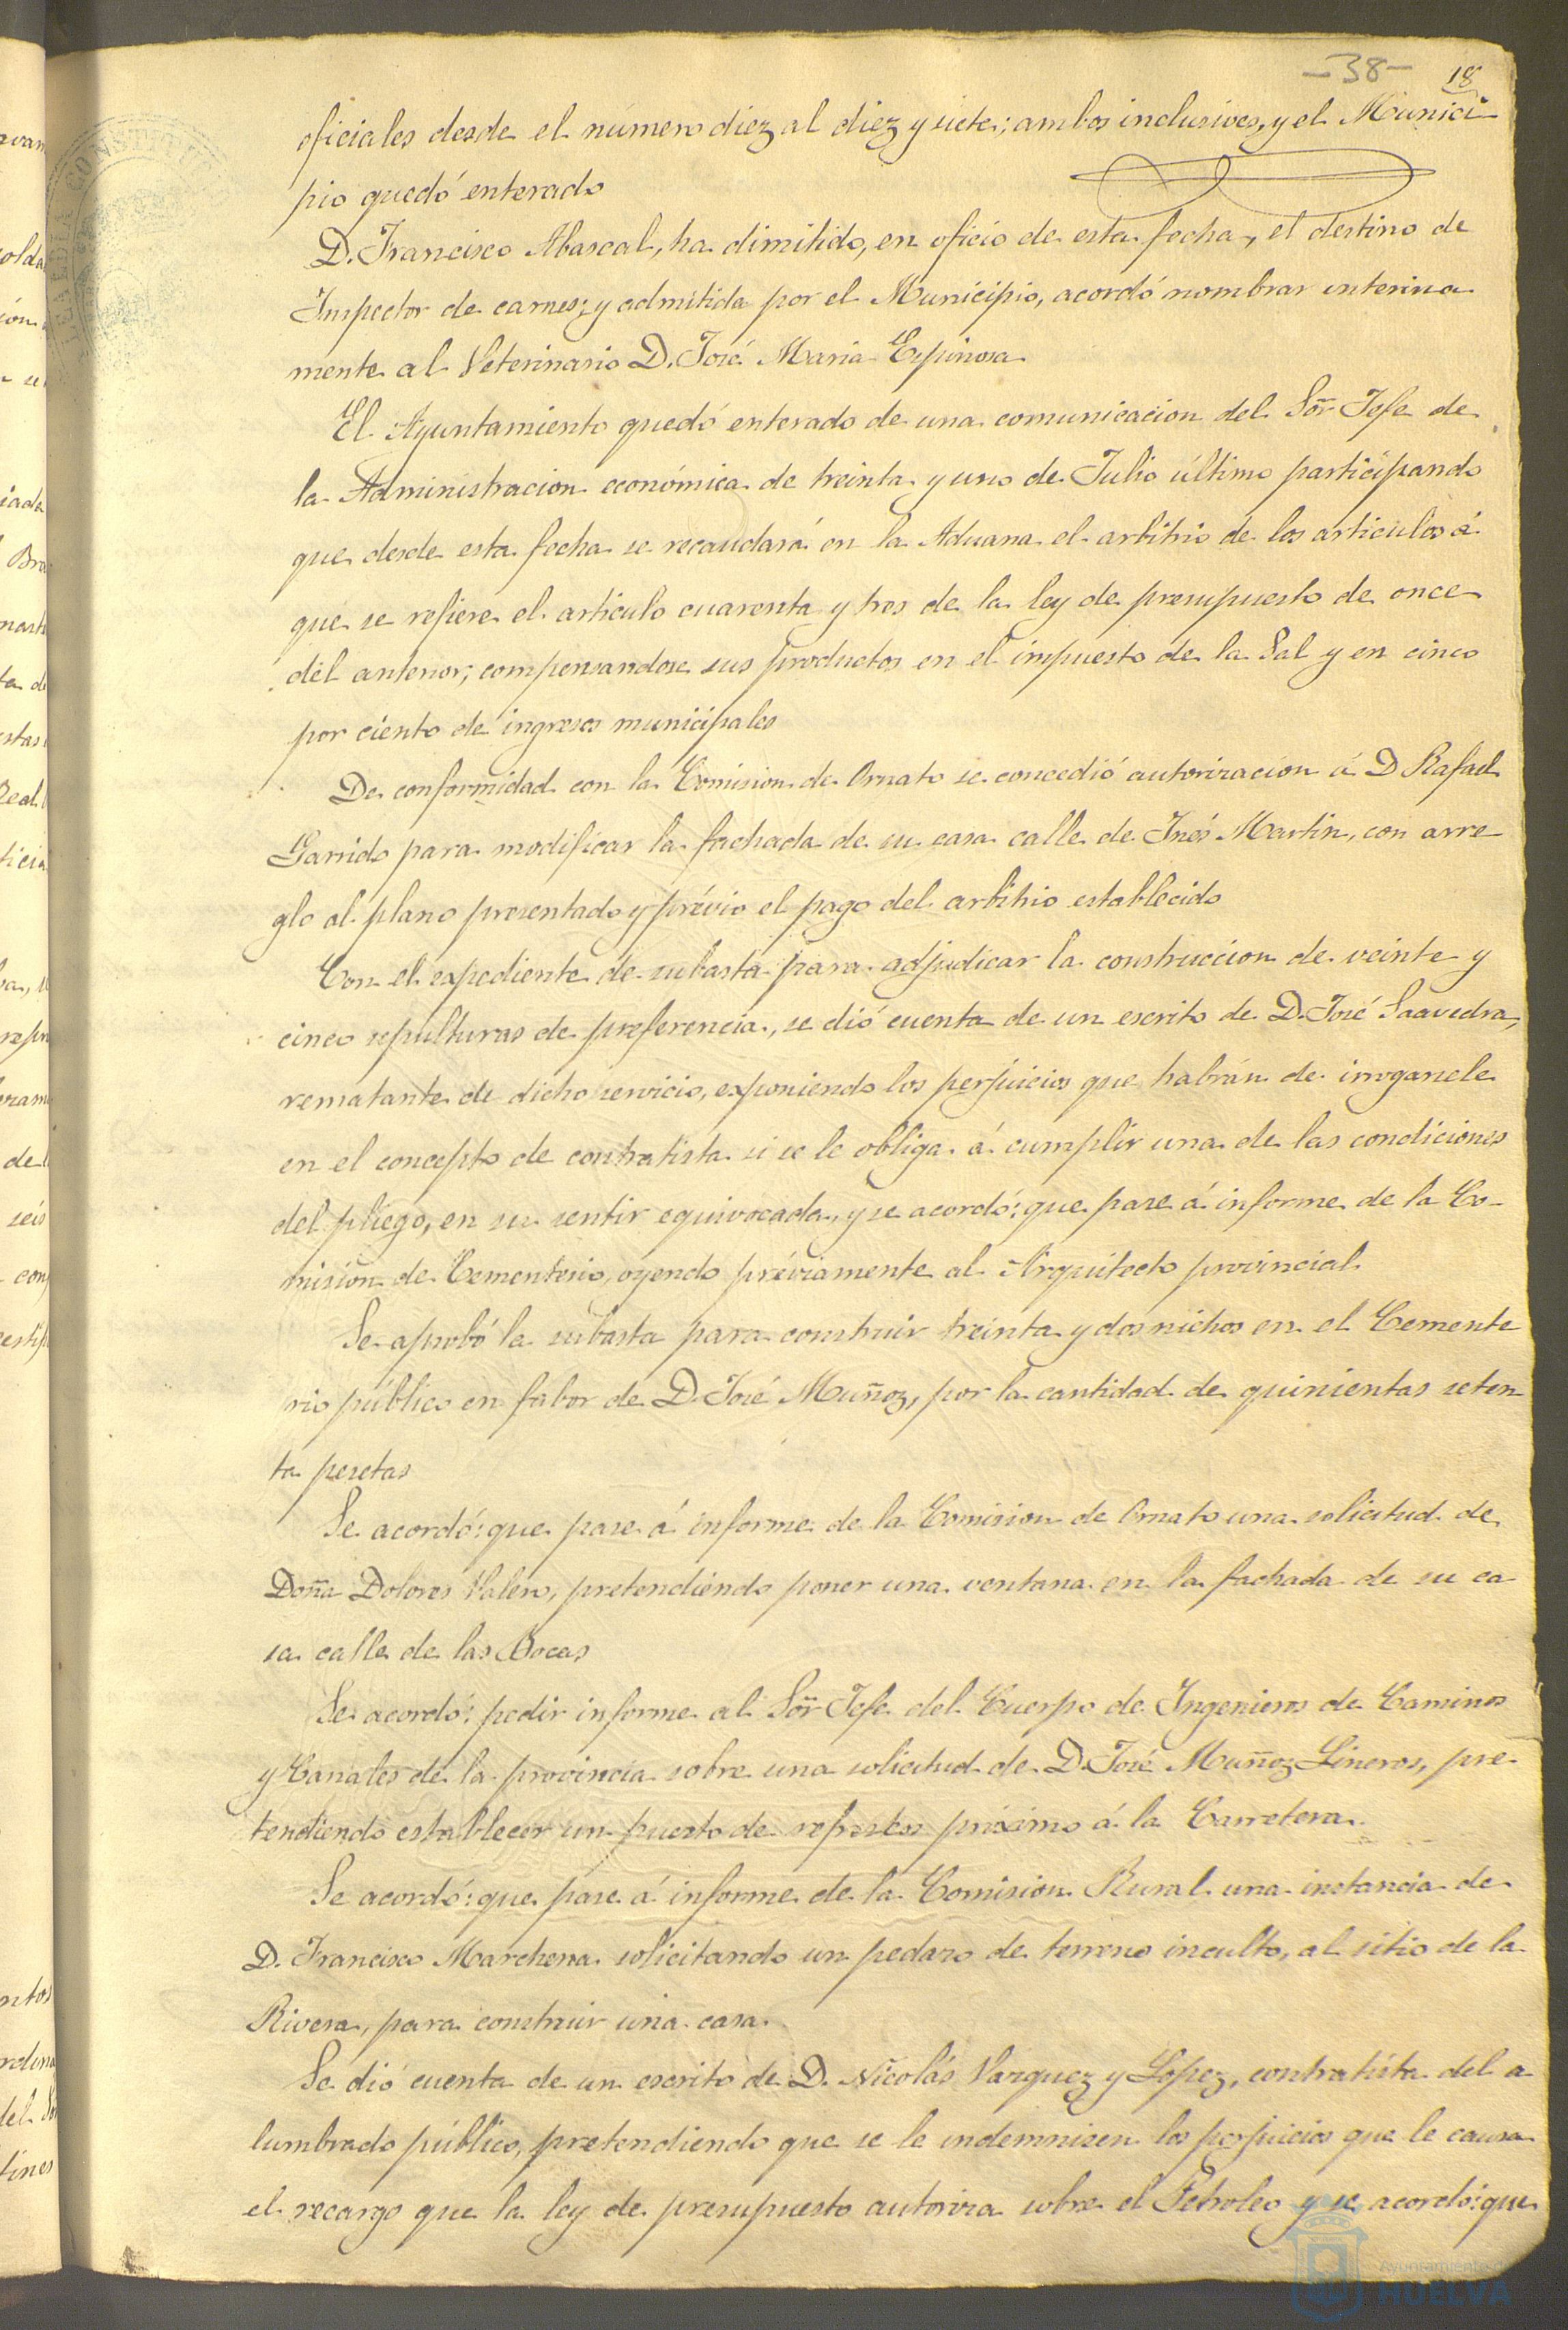 -38- 18
oficiales desde el número diez al diez y siete; ambos inclusives, y el Munici
pio quedó enterado
D. Francisco Abascal, ha dimitido, en oficio de esta fecha, el destino de
Inspector de carnes; y admitida por el Municipio, acordó nombrar interina
mente al Veterinario D. José Maria Espinosa
El Ayuntamiento quedó enterado de una comunicacion del Sor̃ Jefe de
la Administracion económica de treinta y uno de Julio último participando
que desde esta fecha se recaudará en la Aduana el arbitrio de los articulos á
que se refiere el articulo cuarenta y tres de la ley de presupuesto de once
del anterior; compensandose sus productos en el impuesto de la Sal y en cinco
por ciento de ingresos municipales
De conformidad con la Comision de Ornato se concedió autorizacion á D Rafael
Garrido para modificar la fachada de su casa calle de Inés Martin, con arre
glo al plano presentado y prévio el pago del arbitrio establecido
Con el expediente de subasta para adjudicar la construccion de veinte y
cinco sepulturas de preferencia, se dió cuenta de un escrito de D. José Saavedra,
rematante de dicho servicio, exponiendo los perjuicios que habrán de irrogarsele
en el concepto de contratista si se le obliga á cumplir una de las condiciones
del pliego, en su sentir equivocada, y se acordó: que pase á informe de la Co-
mision de Cementerio, oyendo préviamente al Arquitecto provincial
Se aprobó la subasta para construir treinta y dos nichos en el Cemente
rio público en fabor de D. José Muñoz, por la cantidad de quinientas seten
ta pesetas
Se acordó: que pase á informe de la Comision de Ornato una solicitud de
Doña Dolores Valero, pretendiendo poner una ventana en la fachada de su ca
sa calle de las Bocas
Se acordó: pedir informe al Sor̃ Jefe del Cuerpo de Ingenieros de Caminos
y Canales de la provincia sobre una solicitud de D. José Muñoz Lineros, pre-
tendiendo establecer un puesto de refrescos próximo á la Carretera.
Se acordó: que pase á informe de la Comision Rural una instancia de
D. Francisco Marchena solicitando un pedazo de terreno inculto, al sitio de la
Rivera, para construir una casa.
Se dió cuenta de un escrito de D. Nicolás Vazquez y Lopez, contratista del a
lumbrado público, pretendiendo que se le indemnizen los perjuicios que le causa
el recargo que la ley de presupuesto autoriza sobre el Petroleo y se acordó: que
Ayuntamiento de
HUELVA